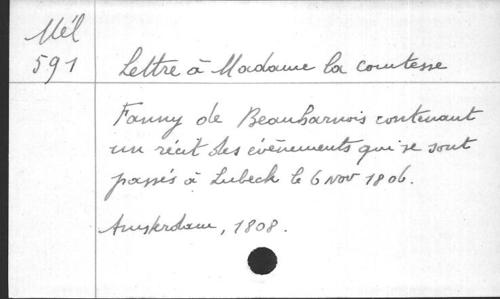 Mél
591
Lettre à Madame la comtesse
Fanny de Beauharnois contenant
un récit des évènements qui se sont
passés à Lubeck le 6 Nov 1806.
Amsterdam, 1808.